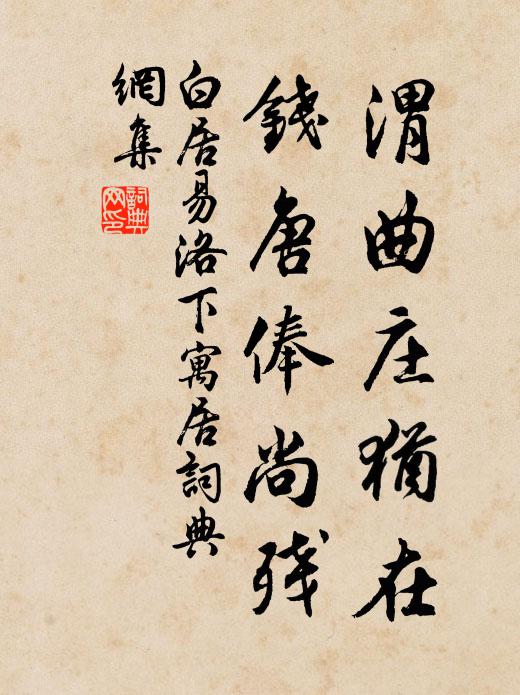 渭曲庄猶在
錢唐俸尚残
白居易洛下寓居詞典
網集
詞典
网印